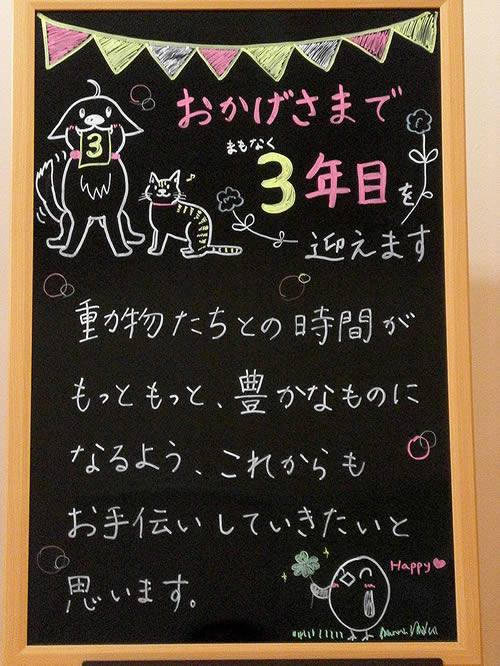 おかげさまで
まもなく
3年目を
迎えます
3
動物たちとの時間が
もっともっと、豊かなものに
なるよう、これからも
お手伝いしていきたいと
思います。
Happy